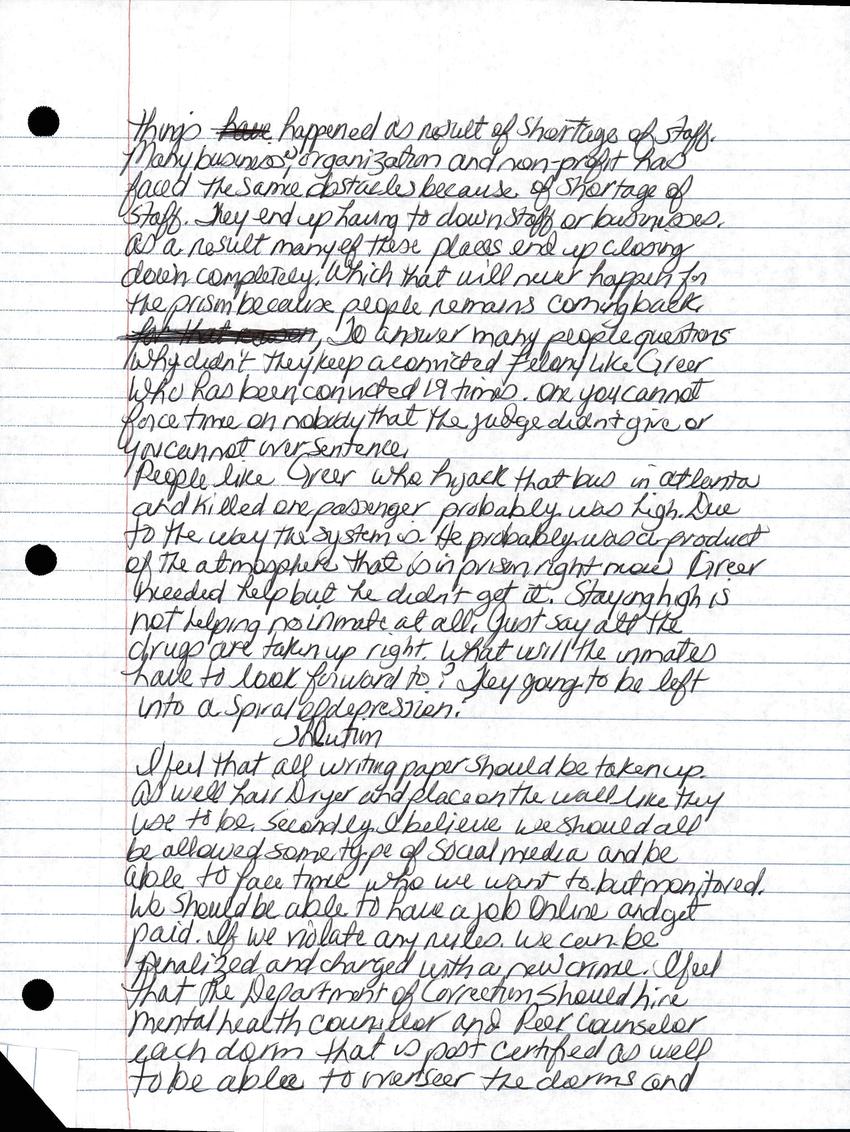 things have happened as result of shortage of staff.
Many business, organization and non-profit has
faced the same obstacles because of shortage of
staff. They end up having to down staff or businesses.
as a result many of these places end up closing
down completely. Which that will never happen for
the prism because people remains coming back
for that reason, To answer many people questions
Why didn't they keep a convicted felony like Greer
who has been convicted 19 times. one you cannot
force time on nobody that the judge didn't give or
you cannot over sentence.
People like Greer who hijack that bus in atlanta
and killed one passenger probably was high. Due
to the way the system is. He probably was a product
of the atmosphere that is in prism right now. Greer
needed help but he didn't get it. Staying high is
not helping no inmate at all. Just say all the
drugs are taken up right. What will the inmates
have to look forward to? They going to be left
into a spiral of depression.
Solution
I feel that all writing paper should be taken up.
as well hair Dryer and place on the wall like they
use to be. Secondly I believe we should all
be allowed some type of social media and be
able to face time who we want to. but monitored.
We should be able to have a job Online and get
paid. If we violate any rules. we can be
penalized and charged with a new crime. I feel
that the Department of Correction should hire
mental health councilor and Peer counselor
each dorm that is post certified as well
to be able to overseer the dorms and